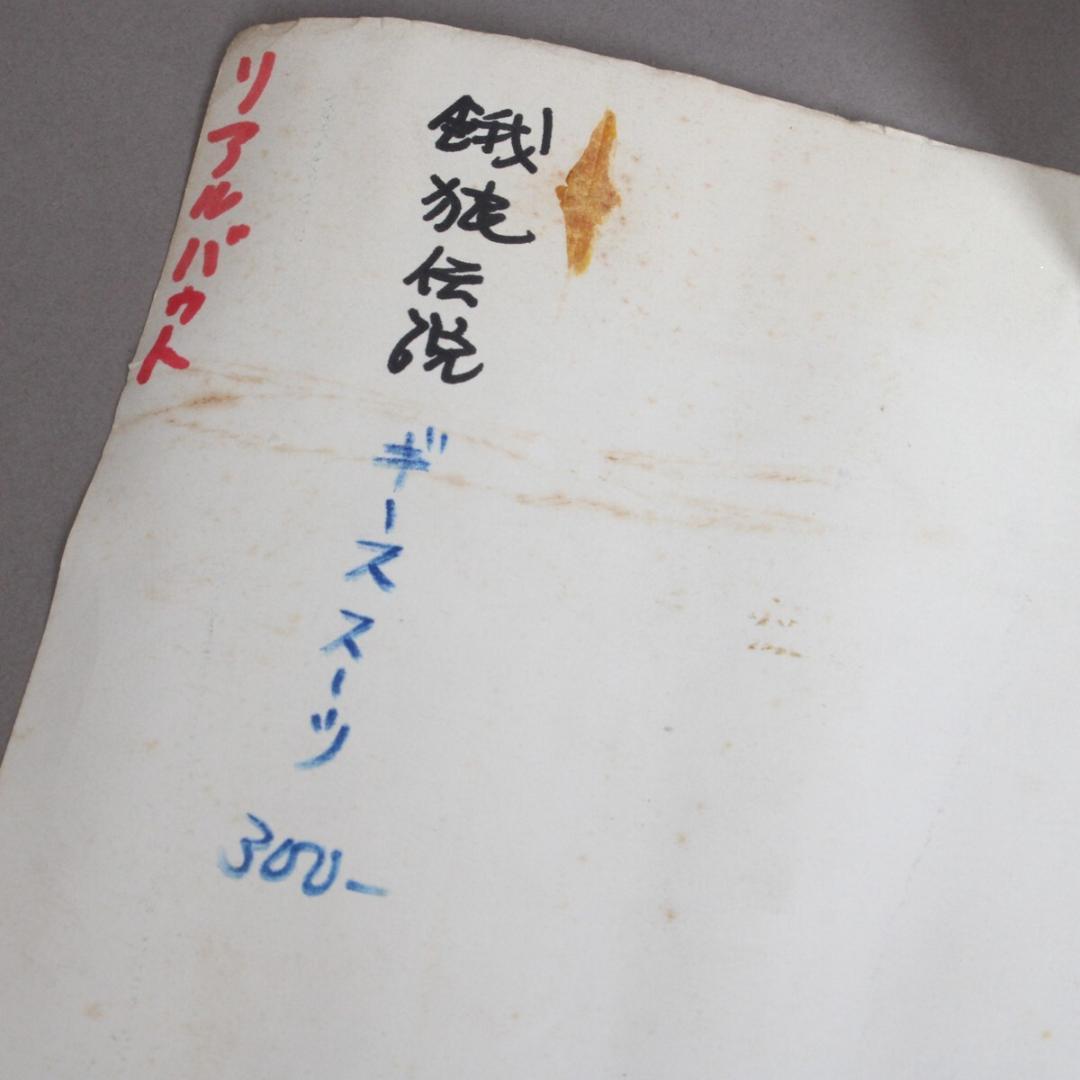 リアルバウト
餓狼伝説
ギース スーツ
300-